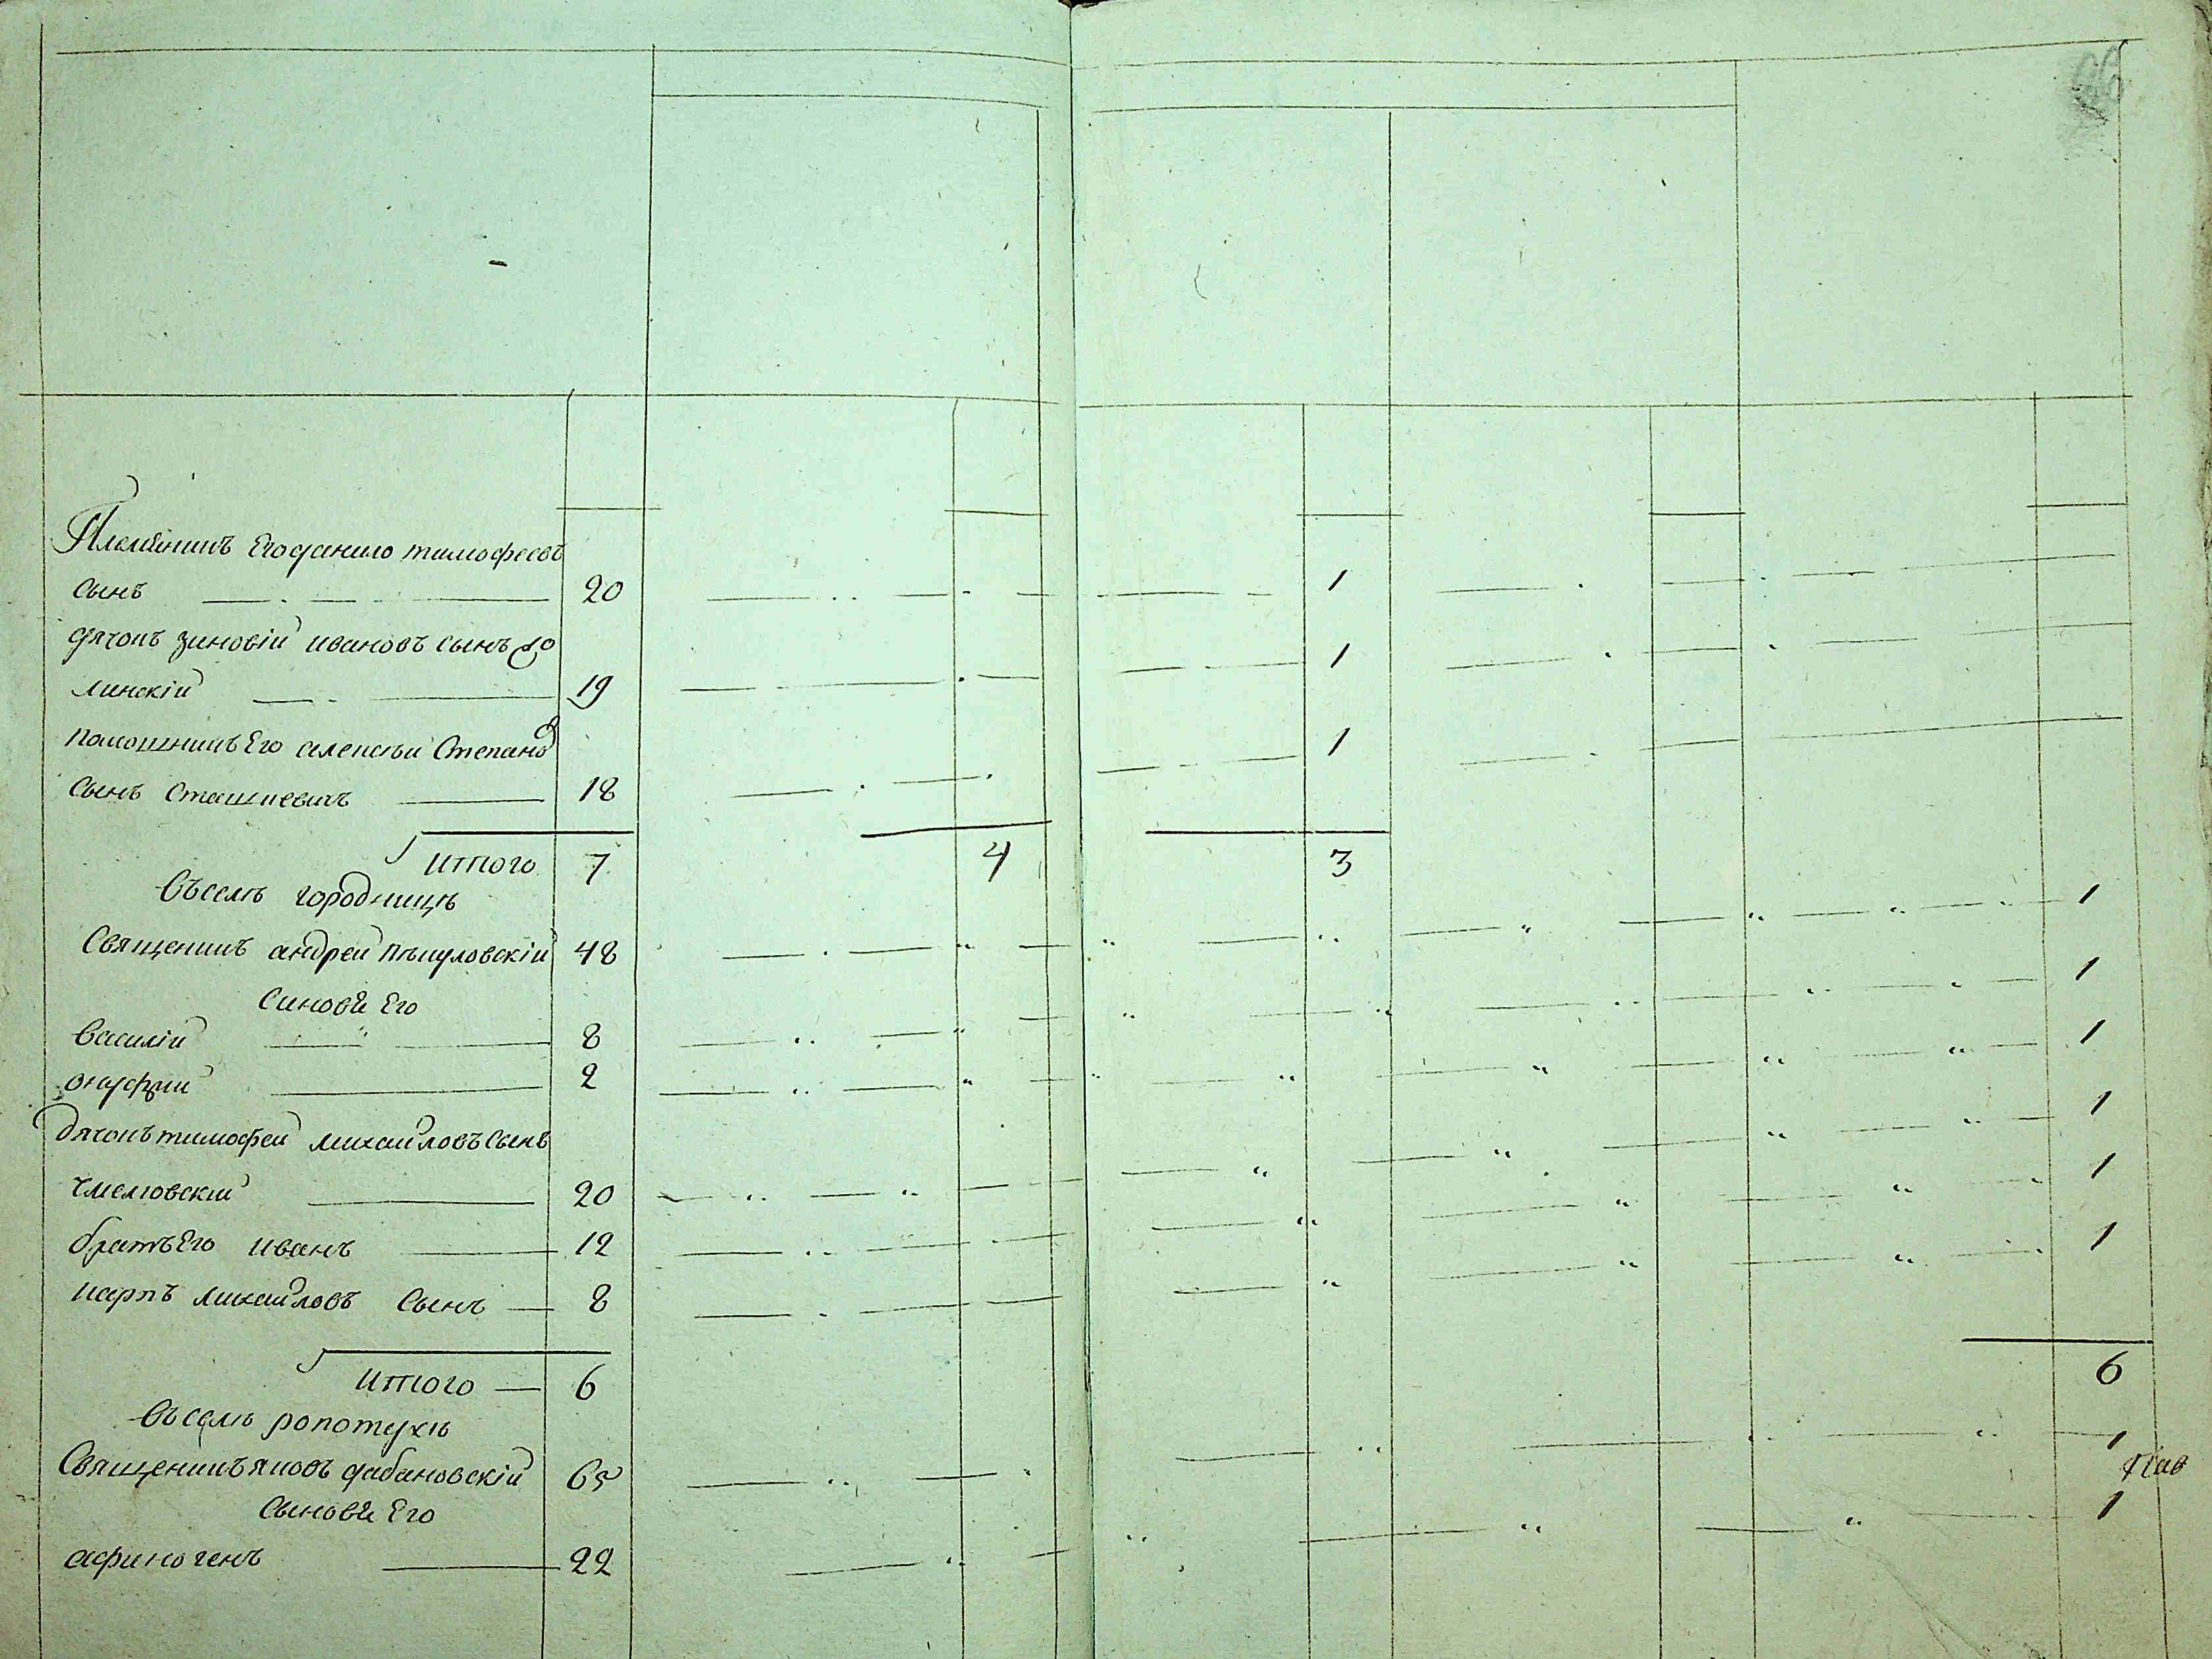 66
Племѣникъ Его данило тимофеевъ
сынъ 20 1
дячокъ зиновіи ивановъ сынъ до
линскій 19 1
помошникъ Его алексѣи Степановъ
сынъ сташкевичъ 18 1
Итого 7 4 3
Въселѣ городницѣ
Священикъ андреи Пѣкуловскій 48 1
Синовѣ Его
Василіи 8 1
онуфріи 2 1
дячокъ тимофеи михаиловъ сынъ
чмелювскіи 20 1
братъ Его иванъ 12 1
карпъ михаиловъ сынъ 8 1
Итого 6 6
Въселѣ ропотухѣ
Священикъ яковъ дабановскій 65 1
Сыновѣ Его
афиногенъ 22 1